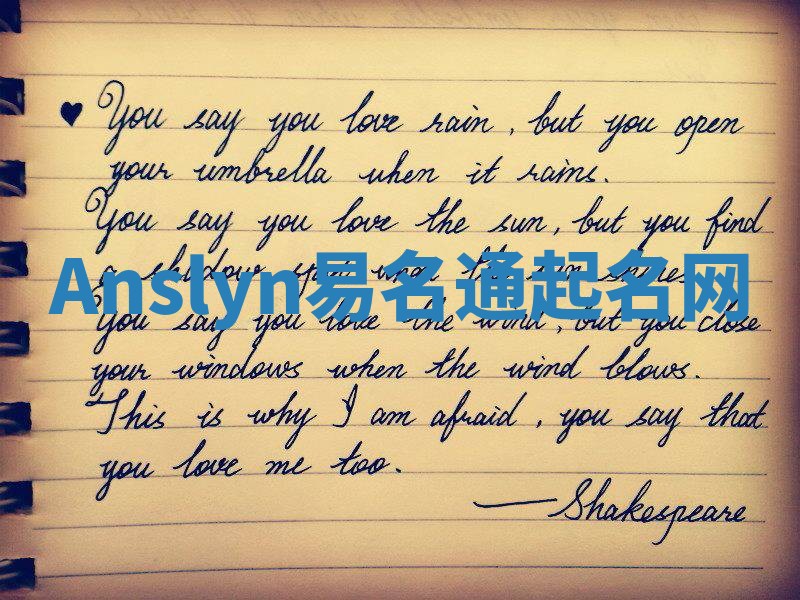 ♥ You say you love rain, but you open
your umbrella when it rains.
You say you love the sun, but you find
a shadow spot when the sun shines.
Anslyn易名通起名网
You say you love the wind, but you close
your windows when the wind blows.
This is why I am afraid, you say that
you love me too.
—Shakespeare